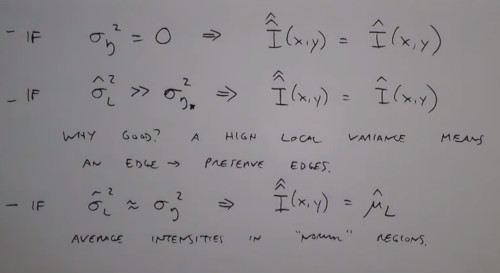 - IF σ_η² = 0 ⇒ Î̂(x,y) = Î(x,y)
- IF σ̂_L² >> σ_η² ⇒ Î̂(x,y) = Î(x,y)
WHY GOOD? A HIGH LOCAL VARIANCE MEANS
AN EDGE → PRESERVE EDGES.
- IF σ̂_L² ≈ σ_η² ⇒ Î̂(x,y) = μ̂_L
AVERAGE INTENSITIES IN "NORMAL" REGIONS.